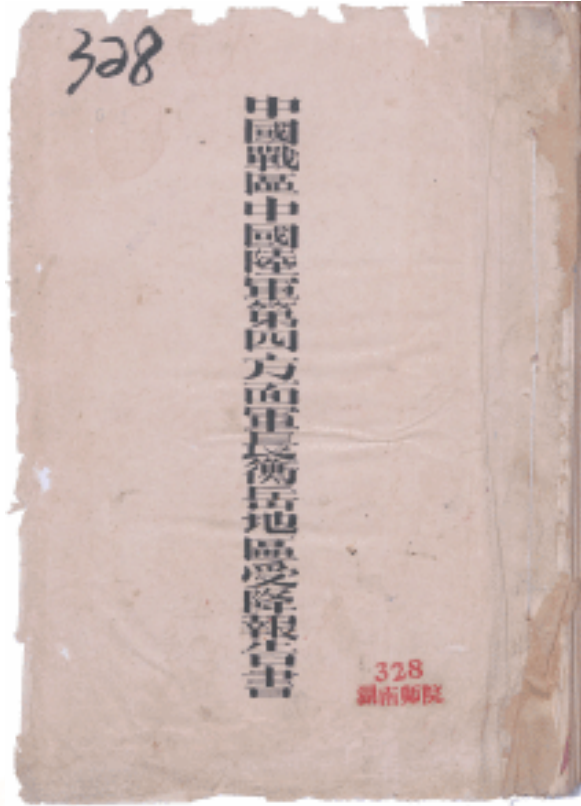 328
中國戰區中國陸軍第四方面軍長衡岳地區受降報告書
328
湖南師院